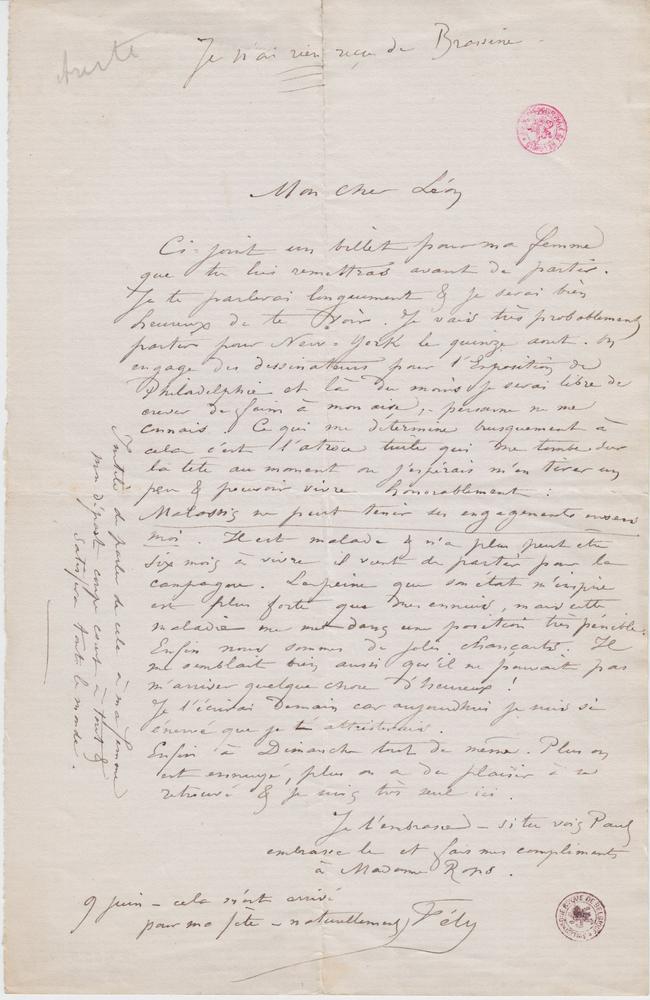 Je n'ai rien reçu de Brassine.
Mon cher Léon
Ci-joint un billet pour ma femme
que tu lui remettras avant de partir.
Je te parlerai longuement & je serai bien
heureux de te voir. Je vais très probablement
partir pour New-York le quinze aout. On
engage des dessinateurs pour l'Exposition de
Philadelphie et là du moins je serai libre de
crever de faim à mon aise, personne ne me
connais. Ce qui me détermine brusquement à
cela c'est l'atroce tuile qui me tombe sur
la tête au moment ou j'espérais m'en tirer un
peu & pouvoir vivre honorablement :
Malassis ne peut tenir ses engagements envers
moi. Il est malade & n'a plus peut etre
six mois à vivre il vient de partir pour la
campagne. La peine que son état m'inspire
est plus forte que mes ennuis, mais cette
maladie me met dans une position très penible.
Enfin nous sommes de jolis chançards. Il
me semblait bien aussi qu'il ne pouvait pas
m'arriver quelque chose d'heureux !
Je t'écrirai Demain car aujourdhui je suis si
énervé que je t'attristerais.
Enfin à Dimanche tout de même. Plus on
est ennuyé, plus on a du plaisir à se
retrouvé & je suis très seul ici.
Je t'embrasse – si tu vois Paul
embrasse le et fais mes compliments
à Madame Rops.
9 juin – cela s'est arrivé
pour ma fête – naturellement, Fély
Inutile de parler de cela à ma femme
mon départ coupe court à tout &
satisfera tout le monde.